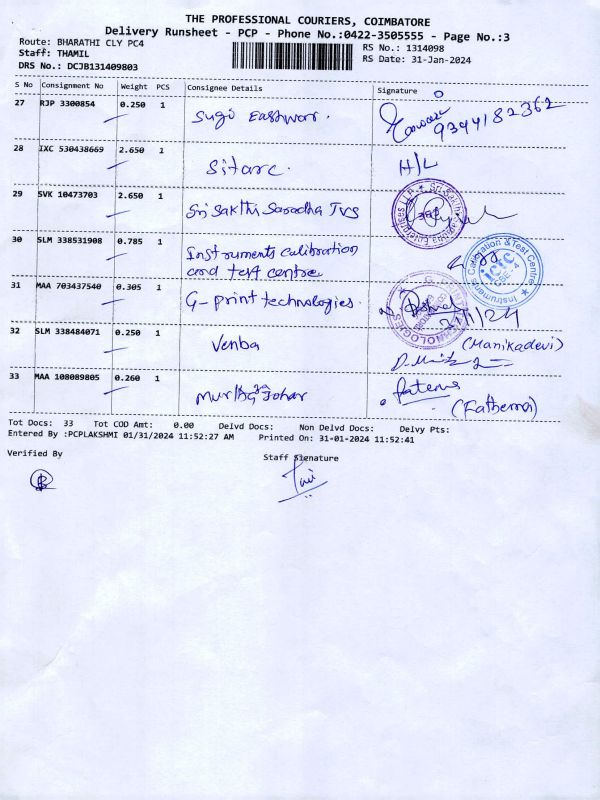 THE PROFESSIONAL COURIERS, COIMBATORE
Delivery Runsheet - PCP - Phone No.:0422-3505555 - Page No.:3
Route: BHARATHI CLY PC4
RS No.: 1314098
Staff: THAMIL
RS Date: 31-Jan-2024
DRS No.: DCJB131409803
S No Consignment No Weight PCS Consignee Details Signature
27 RJP 3300854 0.250 1 Sugi Eashwari. 9344182362
28 IXC 530438669 2.650 1 Sitarc. H/L
29 SVK 10473703 2.650 1 Sri Sakthi Saradha TVS
30 SLM 338531908 0.785 1 Instruments calibration
and test centre
Instruments Calibration & Test Centre
ICTC
31 MAA 703437540 0.305 1 G-print technologies. 31/1/24
32 SLM 338484071 0.250 1 Venba (Manikadevi)
33 MAA 108089805 0.260 1 Johar (Fathema)
Tot Docs: 33 Tot COD Amt: 0.00 Delvd Docs: Non Delvd Docs: Delvy Pts:
Entered By :PCPLAKSHMI 01/31/2024 11:52:27 AM Printed On: 31-01-2024 11:52:41
Verified By
Staff Signature